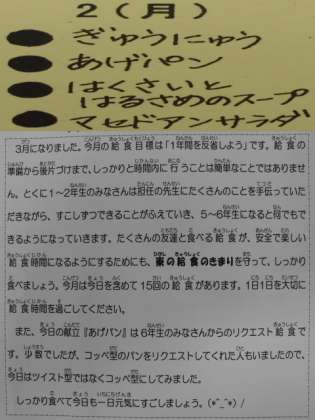 2(月)
ぎゅうにゅう
あげパン
はくさいと
はるさめのスープ
マセドアンサラダ
3月になりました。今月の給食目標は「1年間を反省しよう」です。給食の
準備から後片づけまで、しっかりと時間内に行うことは簡単なことではありませ
ん。とくに1～2年生のみなさんは担任の先生にたくさんのことを手伝っていた
だきながら、すこしずつできることがふえていき、5～6年生になると何でもで
きるようになっていきます。たくさんの友達と食べる給食が、安全で楽しい
給食時間になるようにするためにも、東の給食のきまりを守って、しっかり
食べましょう。今月は今日を含めて15回の給食があります。1日1日を大切に
給食時間を過ごしてください。
また、今日の献立『あげパン』は6年生のみなさんからのリクエスト給食で
す。少数でしたが、コッペ型のパンをリクエストしてくれた人もいましたので、
今日はツイスト型ではなくコッペ型にしてみました。
しっかり食べて今日も一日元気にすごしましょう。(*^_^*)/